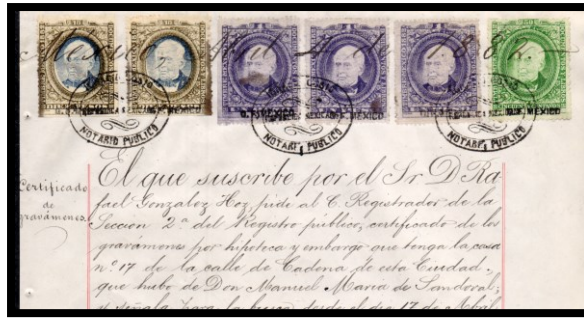 Mexico, Abril 4 de 1882.
NOTARIO PUBLICO
NOTARIO PUBLICO
NOTARIO PUBLICO
MEXICO
MEXICO
Certificado
de
gravámenes.
El que suscribe por el Sr D Ra
fael Gonzalez Hoz, pide al C. Registrador de la
Seccion 2ª del Registro público, certificado de los
gravámenes por hipoteca y embargo que tenga la casa
nº 17 de la calle de Cadena de esta Ciudad,
que hubo de Don Manuel Maria de Sandoval,
y señala para la busca desde el dia 17 de Abril